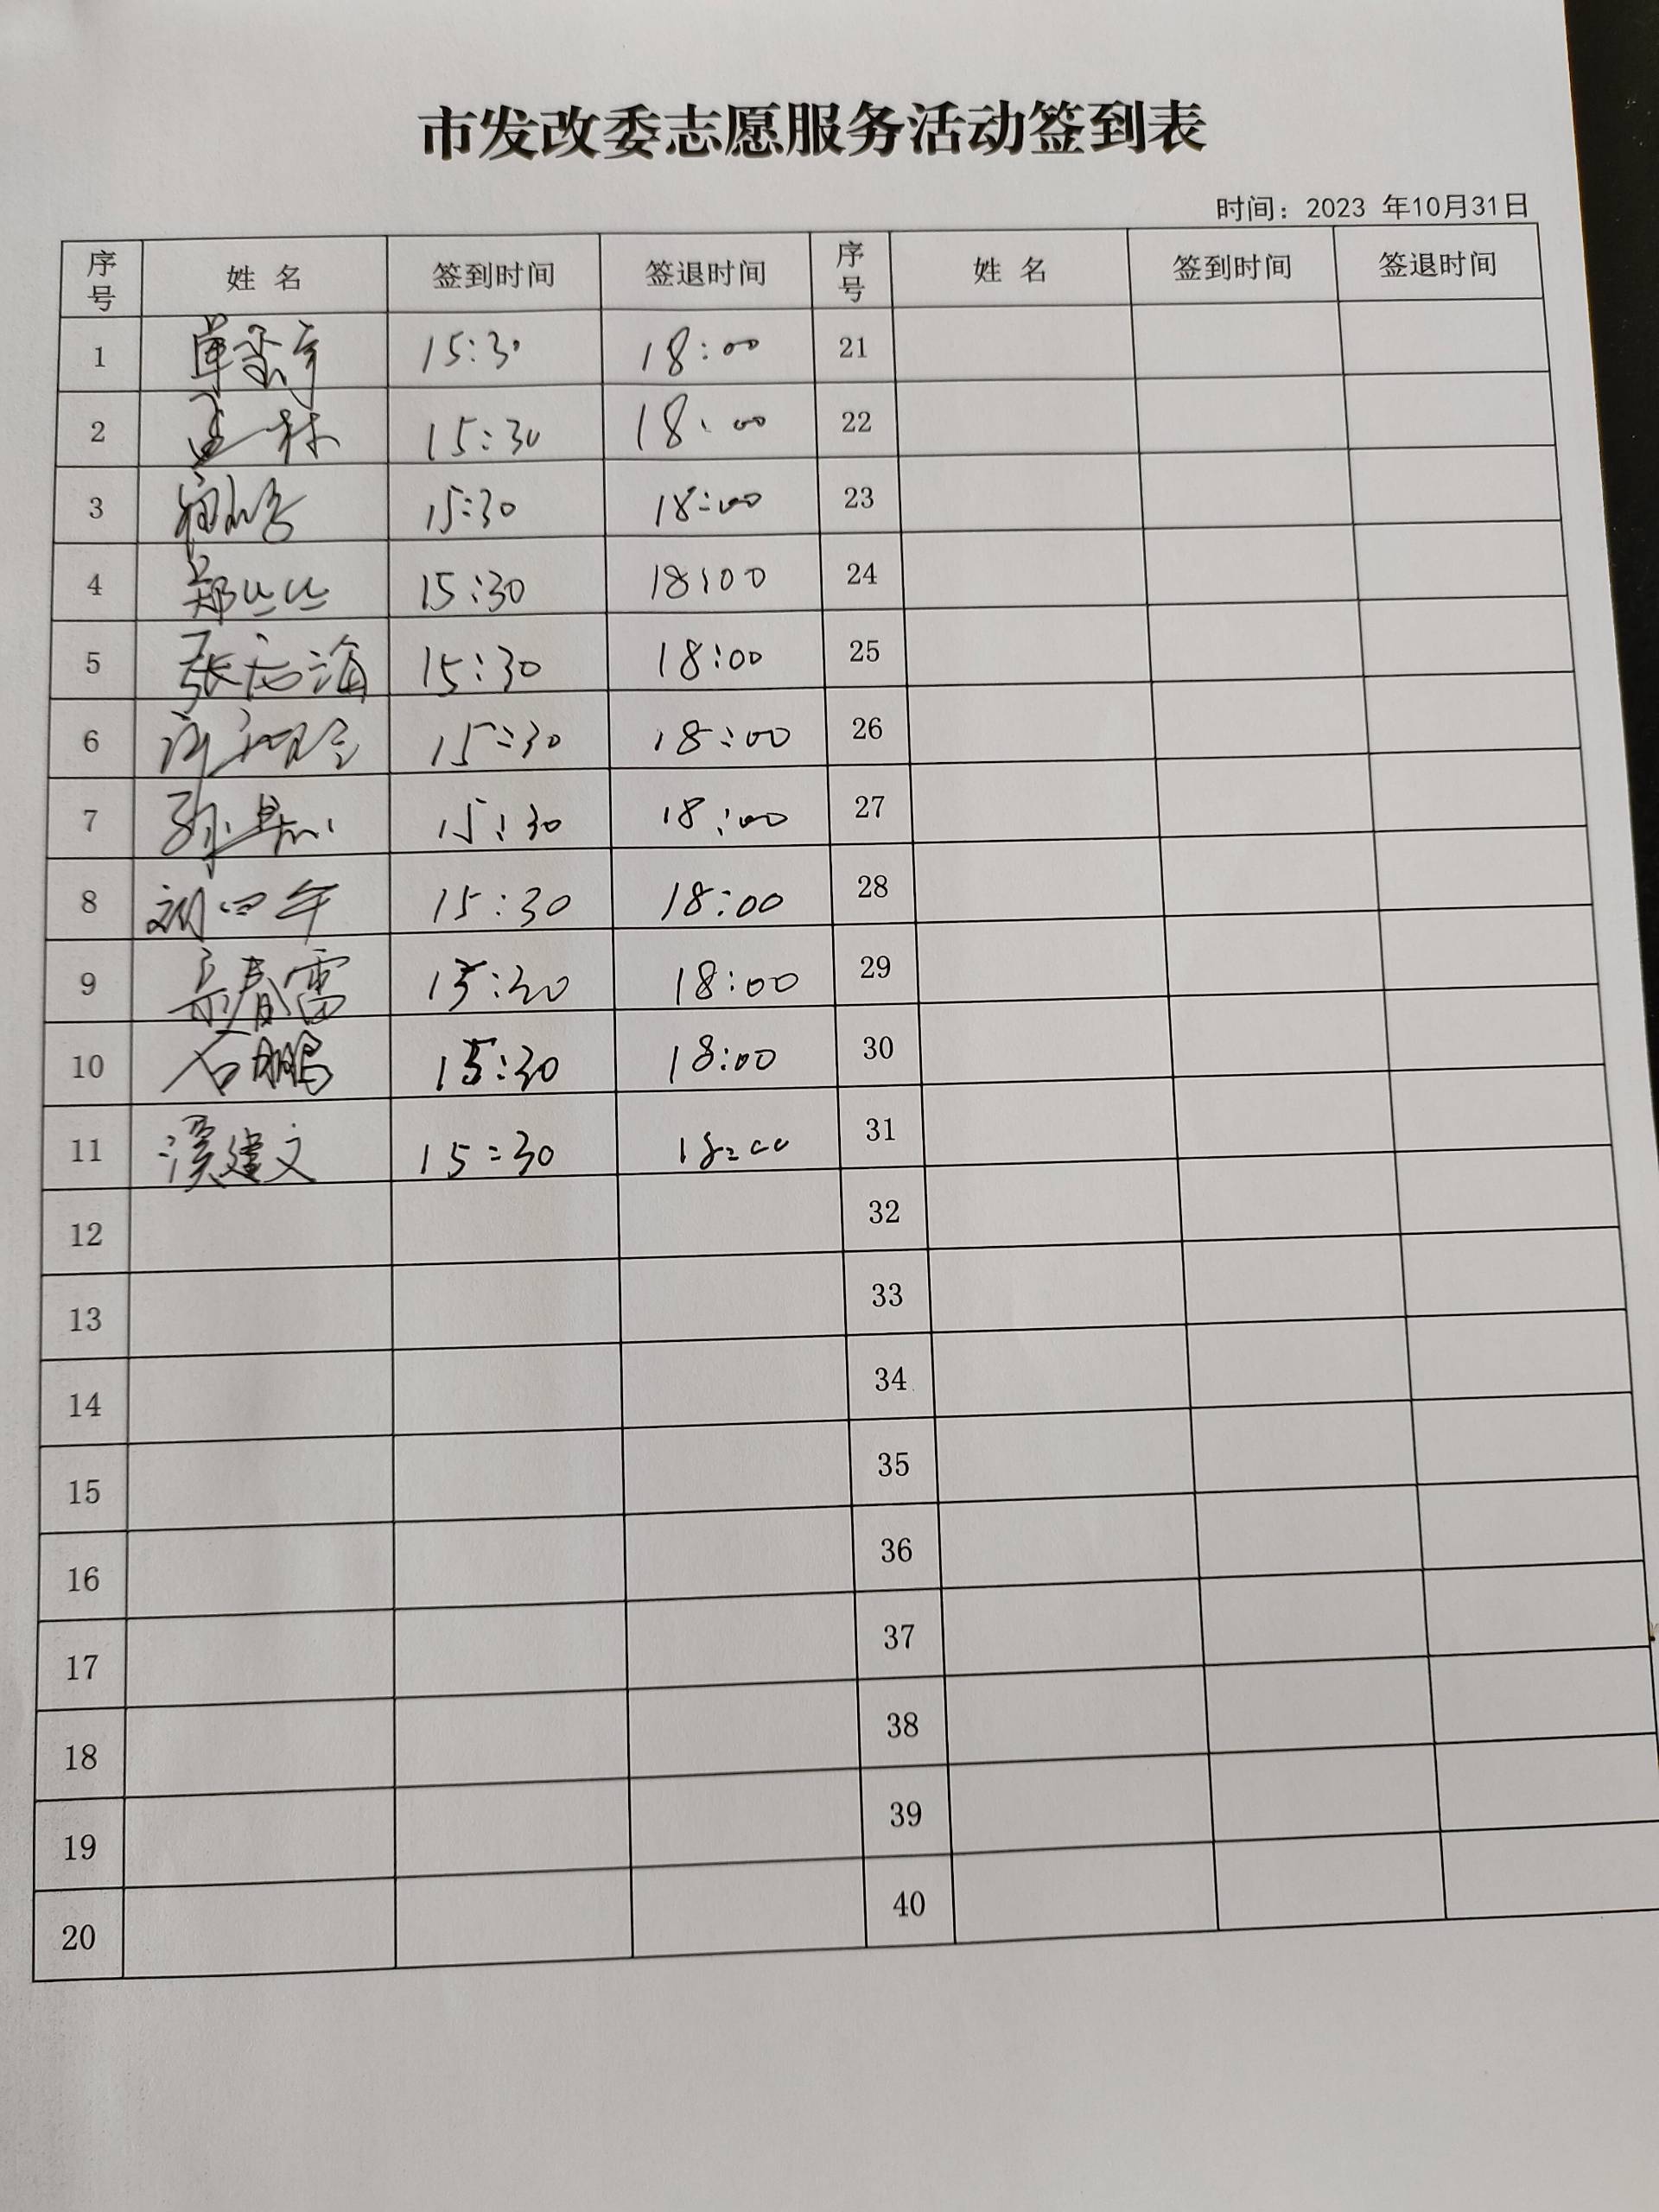 市发改委志愿服务活动签到表
时间：2023 年10月31日
序号 姓 名 签到时间 签退时间 序号 姓 名 签到时间 签退时间
1 15:30 18:00 21
2 15:30 18:00 22
3 15:30 18:00 23
4 郑丝丝 15:30 18:00 24
5 张志海 15:30 18:00 25
6 15:30 18:00 26
7 15:30 18:00 27
8 刘四年 15:30 18:00 28
9 春雷 15:30 18:00 29
10 石鹏 15:30 18:00 30
11 溪建文 15:30 18:00 31
12 32
13 33
14 34
15 35
16 36
17 37
18 38
19 39
20 40